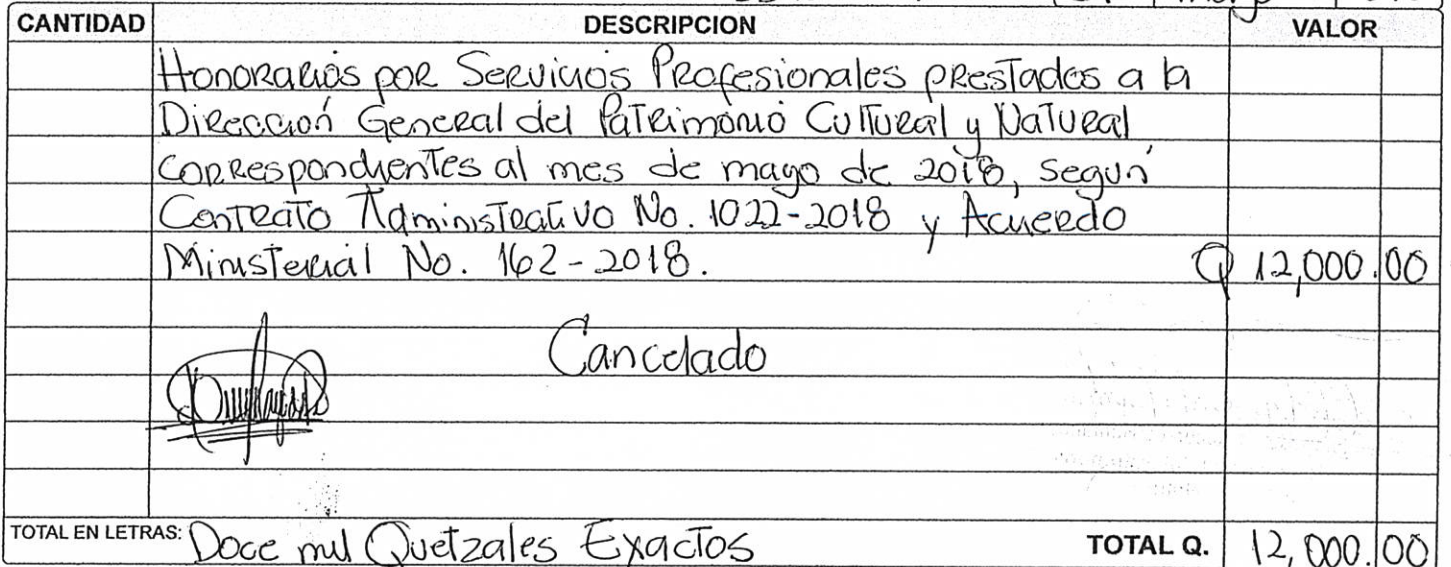 CANTIDAD DESCRIPCION VALOR
Honorarios por Servicios Profesionales prestados a la
Dirección General del Patrimonio Cultural y Natural
correspondientes al mes de mayo de 2018, según
Contrato Administrativo No. 1022-2018 y Acuerdo
Ministerial No. 162-2018. Q 12,000.00
Cancelado
TOTAL EN LETRAS: Doce mil Quetzales Exactos TOTAL Q. 12,000.00